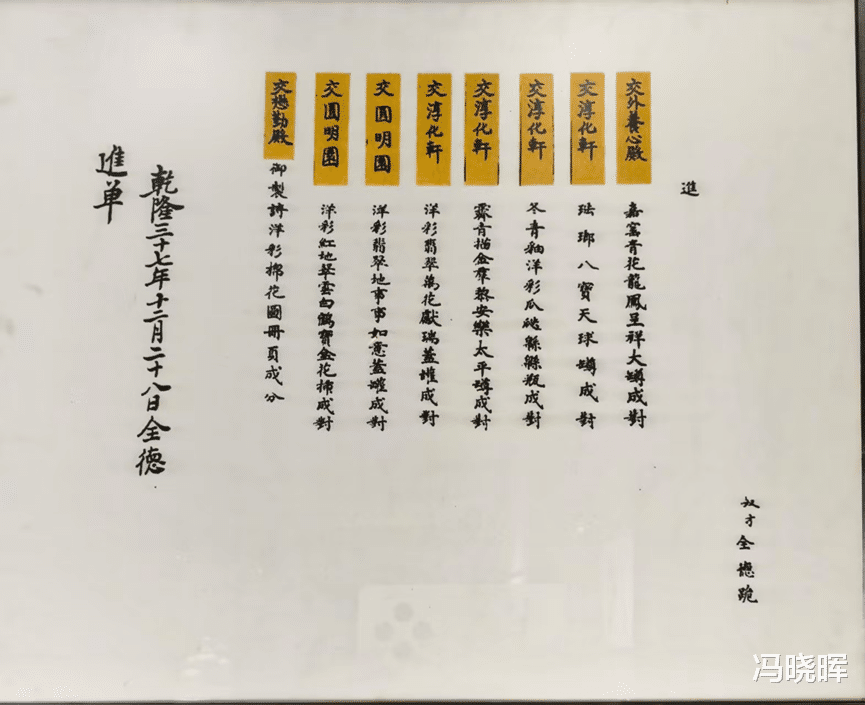 奴才全德跪
進
交外養心殿
嘉窰青花龍鳳呈祥大罇成對
交淳化軒
珐瑯八寶天球罇成對
交淳化軒
冬青釉洋彩瓜瓞緜緜瓶成對
交淳化軒
霽青描金羣黎安樂太平罇成對
交淳化軒
洋彩翡翠萬花獻瑞蓋罐成對
交圓明園
洋彩翡翠地事事如意蓋罐成對
交圓明園
洋彩紅地翠雲白鶴寶金花揷成對
交懋勤殿
御製詩洋彩棉花圖冊頁成分
乾隆三十七年十二月二十八日全德
進单
冯晓晖